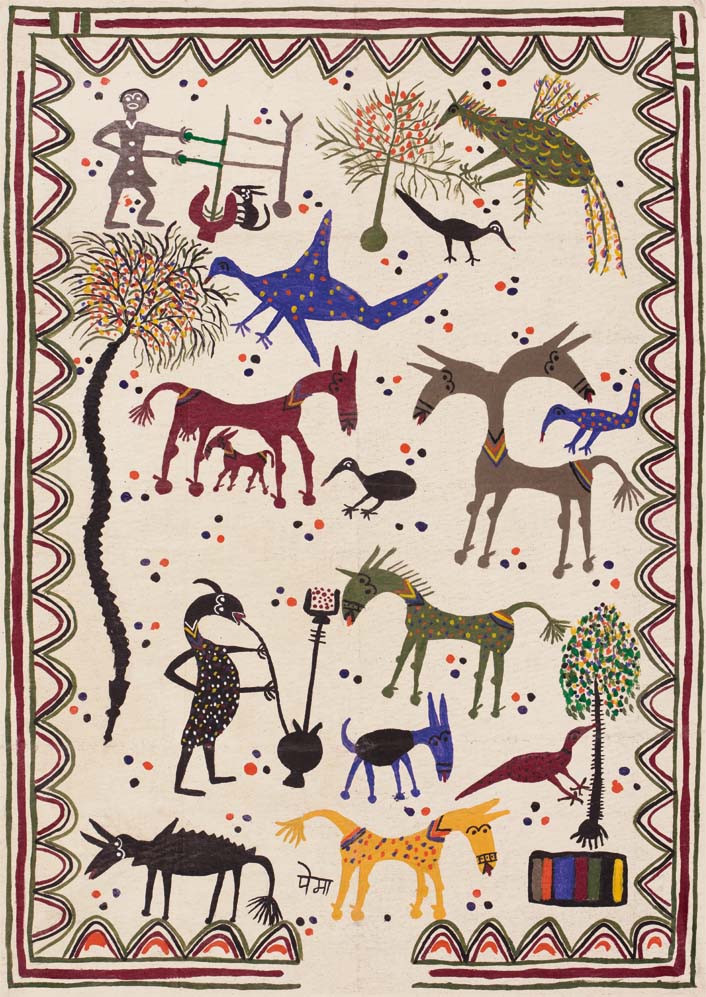 पेमा